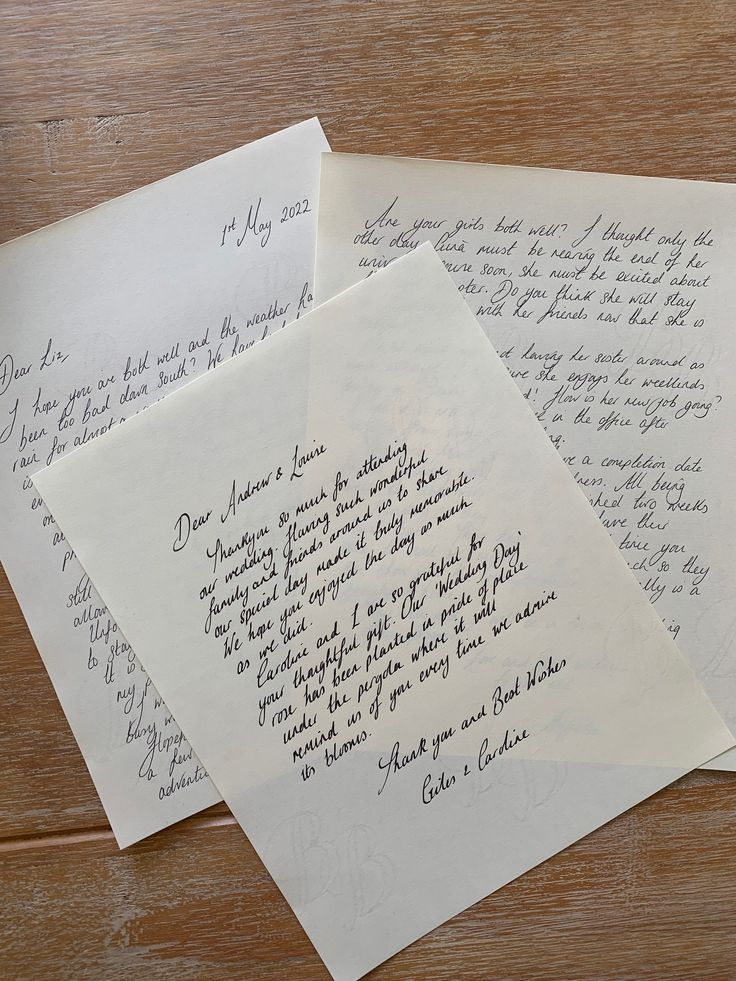 1st May 2022
Dear Liz,
I hope you are both well and the weather ha
been too bad down South? We have had
rain for almost a
is
on
a
p
still
allow
Unfo
to stay
It is
my f
I w
busy w
Hopef
a few
adventu
Are your girls both well? I thought only the
other day must be nearing the end of her
univer soon, she must be excited about
ter. Do you think she will stay
with her friends now that she is
ot having her sister around as
ure she enjoys her weekends
d! How is her new job going?
e in the office after
ng.
ve a completion date
ness. All being
shed two weeks
have their
time you
ch so they
illy is a
ing
Dear Andrew & Louise
Thankyou so much for attending
our wedding. Having such wonderful
family and friends around us to share
our special day made it truly memorable.
We hope you enjoyed the day as much
as we did.
Caroline and I are so grateful for
your thoughtful gift. Our 'Wedding Day'
rose has been planted in pride of place
under the pergola where it will
remind us of you every time we admire
its blooms.
Thank you and Best Wishes
Giles & Caroline